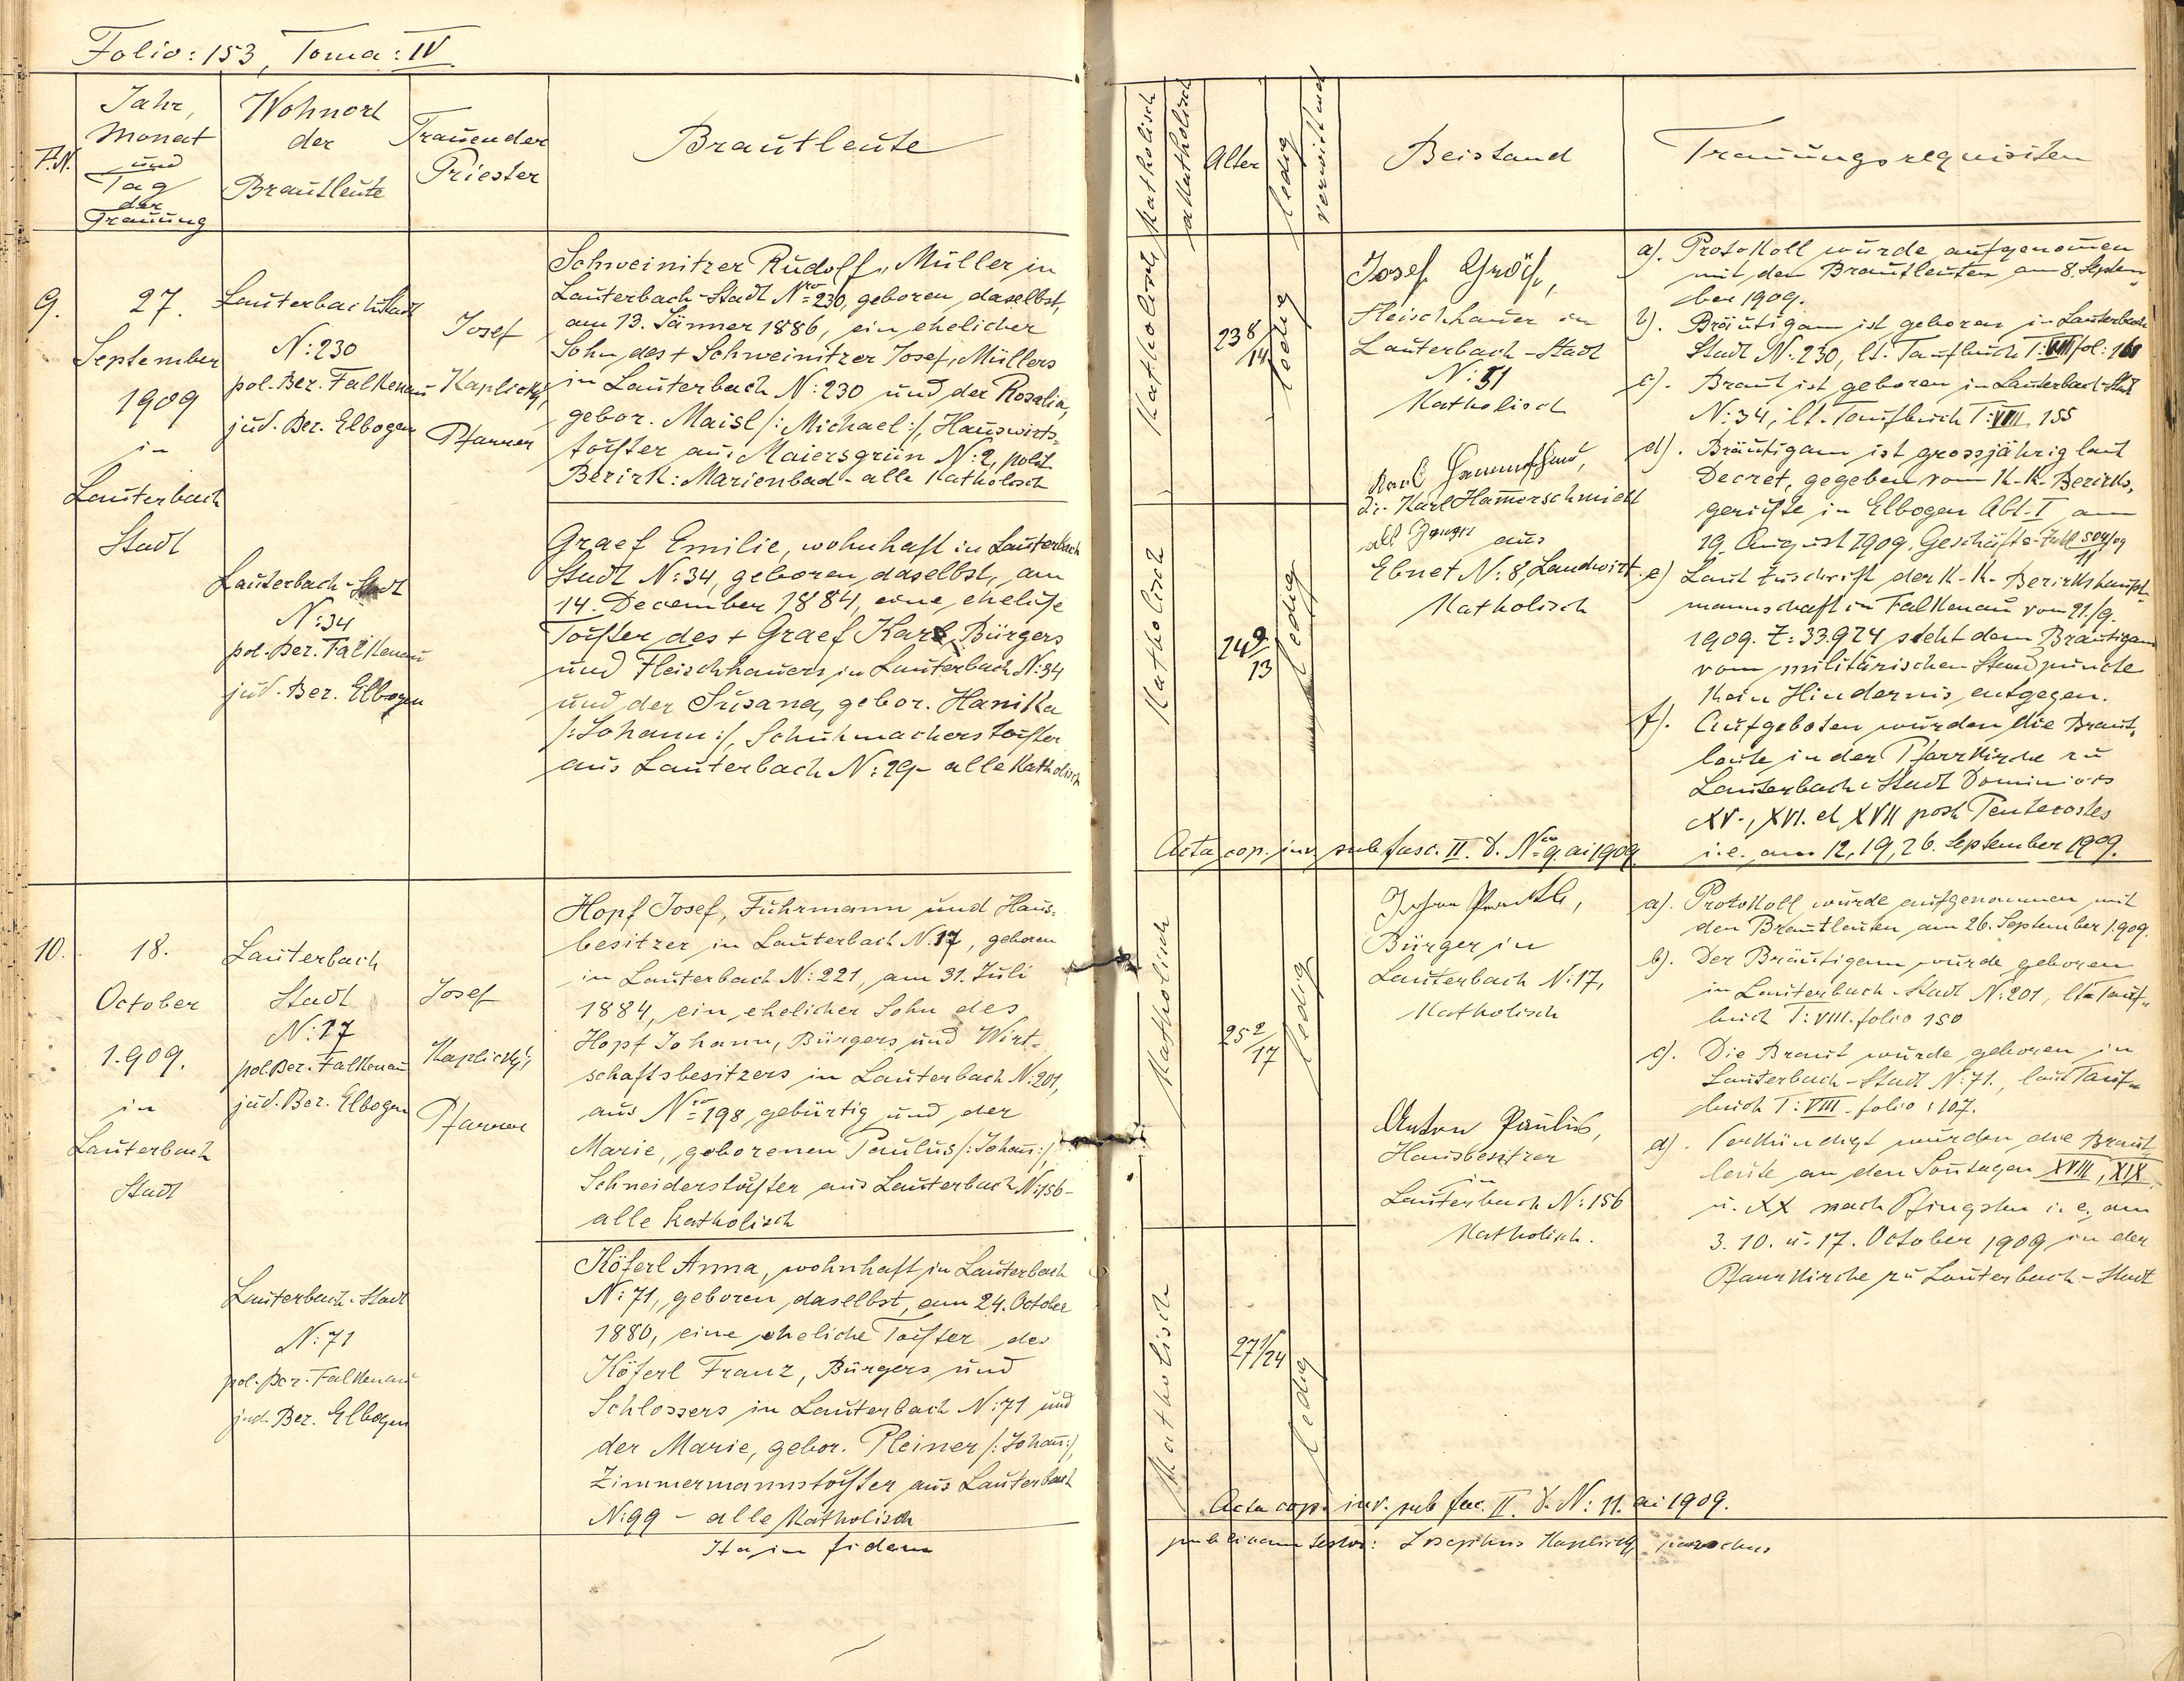 Folio: 153, Toma: IV
F.N.
Jahr,
Monat
und
Tag
der
Trauung
Wohnort
der
Brautleute
Trauender
Priester
Brautleute
Katholisch
akatholisch
Alter
ledig
verwittwet
Beistand
Trauungsrequisiten
9.
27.
September
1909
in
Lauterbach
Stadt
Lauterbach-Stadt
N: 230
pol. Bez. Falkenau
jud. Bez. Elbogen
Lauterbach-Stadt
N: 34
pol. Bez. Falkenau
jud. Bez. Elbogen
Josef
Kaplický,
Pfarrer
Schweinitzer Rudolf, Müller in
Lauterbach-Stadt Nro 230, geboren daselbst,
am 13. Jänner 1886, ein ehelicher
Sohn des + Schweinitzer Josef, Müllers
in Lauterbach N: 230 und der Rosalia,
gebor. Maisl /: Michael :/, Hauswirts-
tochter aus Maiersgrün N: 2, polit.
Bezirk: Marienbad - alle Katholisch
Graef Emilie, wohnhaft in Lauterbach
Stadt N: 34, geboren daselbst, am
14. December 1884, eine eheliche
Tochter des + Graef Karl, Bürgers
und Fleischhauers in Lauterbach N: 34
und der Susana, gebor. Hanika
/: Johann :/, Schuhmacherstochter
aus Lauterbach N: 29 - alle Katholisch
Katholisch
23 8/14
ledig
Katholisch
24 9/13
ledig
Josef Gröf,
Fleischhauer in
Lauterbach-Stadt
N: 51
Katholisch
Karl
Karl Hamerschmidt
als Zeuge aus
Ebnet N: 8, Landwirt
Katholisch
a). Protokoll wurde aufgenomen
mit den Brautleuten am 8. Septem-
ber 1909.
b). Bräutigam ist geboren in Lauterbach
Stadt N: 230, lt. Taufbuch T: VIII fol:
c). Braut ist geboren in Lauterbach-Stadt
N: 34, lt. Taufbuch T: VIII, 155
d). Bräutigam ist grossjährig laut
Decret, gegeben vom K.K. Bezirks-
gerichte in Elbogen Abt. I am
19. August 1909. Geschäfts-Zahl
e) Laut Zuschrift der K.K. Bezirkshaupt-
mannschaft in Falkenau vom 21/9.
1909. Z: 33.924 steht dem Bräutigam
vom militärischen Standpuncte
kein Hindernis entgegen.
f). Aufgeboten wurden die Braut-
leute in der Pfarrkirche zu
Lauterbach-Stadt Dominicis
XV., XVI. et XVII post Pentecostes
i.e. am 12, 19, 26. September 1909.
Acta cop. inv. sub fasc. II. d. Nro 9. ai 1909.
10.
18.
October
1.909.
in
Lauterbach
Stadt
Lauterbach
Stadt
N: 17
pol. Bez. Falkenau
jud. Bez. Elbogen
Lauterbach-Stadt
N: 71
pol. Bez. Falkenau
jud. Bez. Elbogen
Josef
Kaplický,
Pfarrer
Hopf Josef, Fuhrmann und Haus-
besitzer in Lauterbach N. 17, geboren
in Lauterbach N: 221, am 31. Juli
1884, ein ehelicher Sohn des
Hopf Johann, Bürgers und Wirt-
schaftsbesitzers in Lauterbach N: 201,
aus Nro 198, gebürtig und der
Marie, geborenen Paulus /: Johann :/,
Schneiderstochter aus Lauterbach N: 156 -
alle Katholisch
Köferl Anna, wohnhaft in Lauterbach
N: 71, geboren daselbst, am 24. October
1880, eine eheliche Tochter des
Köferl Franz, Bürgers und
Schlossers in Lauterbach N: 71 und
der Marie, gebor. Pleiner /: Johann :/,
Zimmermannstochter aus Lauterbach
N: 99 - alle Katholisch
Katholisch
25 2/17
ledig
Katholisch
ledig
Bürger in
Lauterbach N: 17,
Katholisch
Anton Paulus,
Hausbesitzer
in
Lauterbach N: 156
Katholisch.
a). Protokoll wurde aufgenommen mit
den Brautleuten am 26. September 1.909.
b). Der Bräutigam wurde geboren
in Lauterbach-Stadt N: 201, lt. Tauf-
buch T: VIII. folio 150
c). Die Braut wurde geboren in
Lauterbach-Stadt N: 71., laut Tauf-
buch T: VIII. folio: 107.
d). Verkündigt wurden die Braut-
leute an den Sontagen XVIII, XIX
u. XX nach Pfingsten i. e. am
3. 10. u. 17. October 1909 in der
Pfarrkirche zu Lauterbach-Stadt
Acta cop. inv. sub fac. II d. N: 11. ai 1909.
Ita in fidem publicam testor: Josephus Kaplický parochus